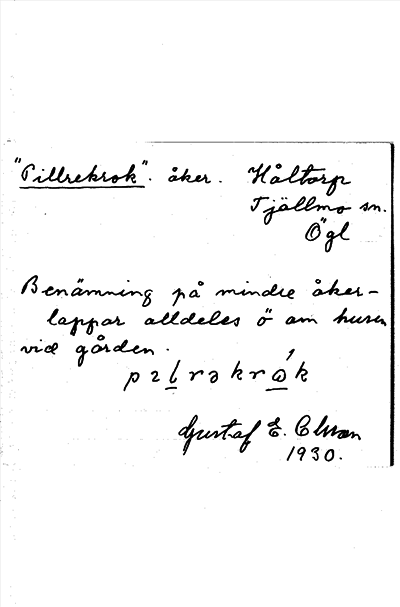 "Pillrekrok". åker. Håltorp
Tjällmo sn.
Ögl
Benämning på mindre åker-
lappar alldeles ö om husen
vid gården.
Gustaf E. Olsson
1930.